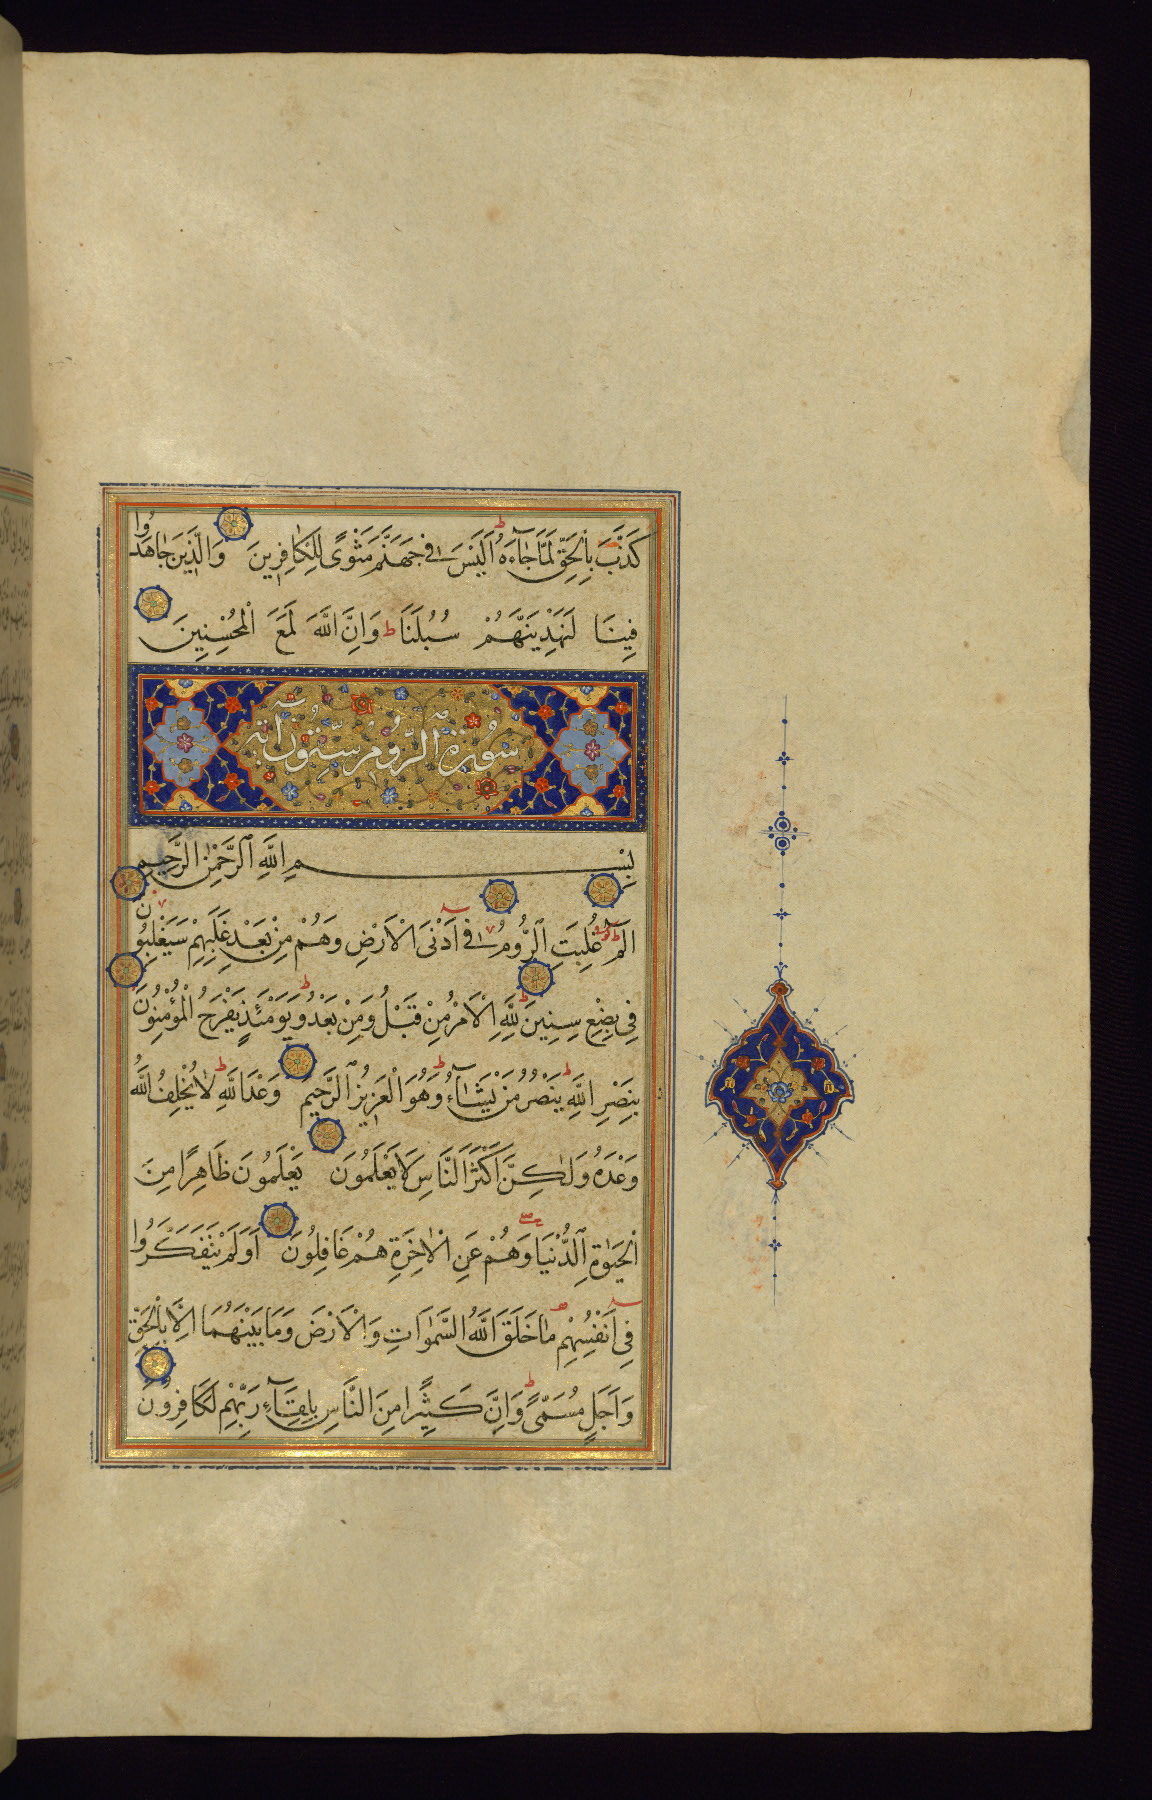 كَذَّبَ بِالْحَقِّ لَمَّا جَاءَهُ ط اَلَيْسَ فِي جَهَنَّمَ مَثْوًى لِلْكَافِرِينَ وَالَّذِينَ جَاهَدُوا
فِينَا لَنَهْدِيَنَّهُمْ سُبُلَنَا ط وَاِنَّ اللَّهَ لَمَعَ الْمُحْسِنِينَ
سُورَةُ الرُّومِ سِتُّونَ آيَة
بِسْمِ اللَّهِ الرَّحْمٰنِ الرَّحِيمِ
الم غُلِبَتِ الرُّومُ فِي اَدْنَى الْاَرْضِ وَهُمْ مِنْ بَعْدِ غَلَبِهِمْ سَيَغْلِبُونَ
فِي بِضْعِ سِنِينَ ط لِلَّهِ الْاَمْرُ مِنْ قَبْلُ وَمِنْ بَعْدُ ط وَيَوْمَئِذٍ يَفْرَحُ الْمُؤْمِنُونَ
بِنَصْرِ اللَّهِ ط يَنْصُرُ مَنْ يَشَاءُ ط وَهُوَ الْعَزِيزُ الرَّحِيمُ وَعْدَ اللَّهِ ط لَا يُخْلِفُ اللَّهُ
وَعْدَهُ وَلٰكِنَّ اَكْثَرَ النَّاسِ لَا يَعْلَمُونَ يَعْلَمُونَ ظَاهِرًا مِنَ
الْحَيٰوةِ الدُّنْيَا وَهُمْ عَنِ الْاٰخِرَةِ هُمْ غَافِلُونَ اَوَلَمْ يَتَفَكَّرُوا
فِي اَنْفُسِهِمْ مَا خَلَقَ اللَّهُ السَّمٰوَاتِ وَالْاَرْضَ وَمَا بَيْنَهُمَا اِلَّا بِالْحَقِّ
وَاَجَلٍ مُسَمًّى ط وَاِنَّ كَثِيرًا مِنَ النَّاسِ بِلِقَاءِ رَبِّهِمْ لَكَافِرُونَ